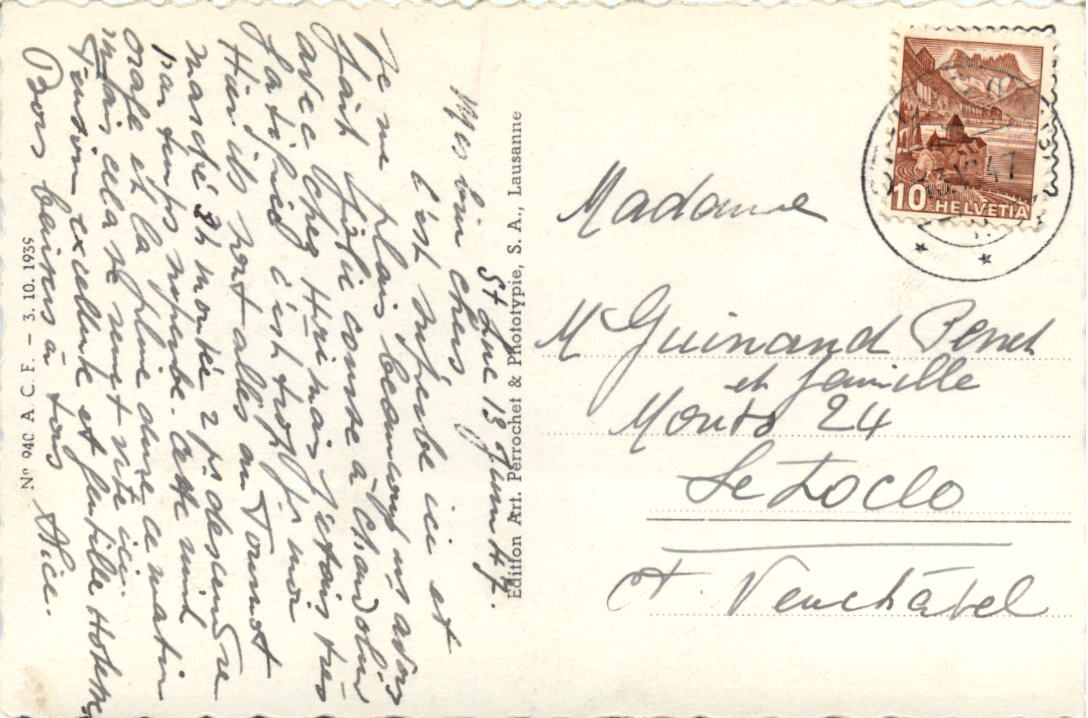 St Luc 13 Juin 47.
Mes bien chers,
C'est superbe ici et
je me plais beaucoup ns avons
fait jolie course à Chandolin
avec chez Henri mais j'étais très
fatiguée c'est trop pr moi
Hier ils sont allés au Tounot
marche 3h montée 2 h descendre
par temps superbe. Cette nuit
orage et la pluie dure ce matin
mais cela se remet vite ici.
Pension excellente et gentille
Bons baisers à tous Alice.
No 940 A. C. F. – 3. 10. 1939
Edition Art. Perrochet & Phototypie, S. A., Lausanne
10 HELVETIA
47
Madame
M Guinand Perret
et famille
Monts 24
Le Locle
Ct Neuchâtel